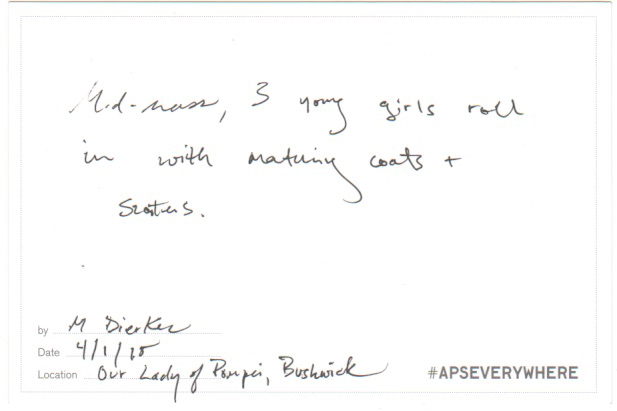 Mid-mass, 3 young girls roll
in with matching coats +
scooters.
by M Dierker
Date 4/1/15
Location Our Lady of Pompei, Bushwick
#APSEVERYWHERE